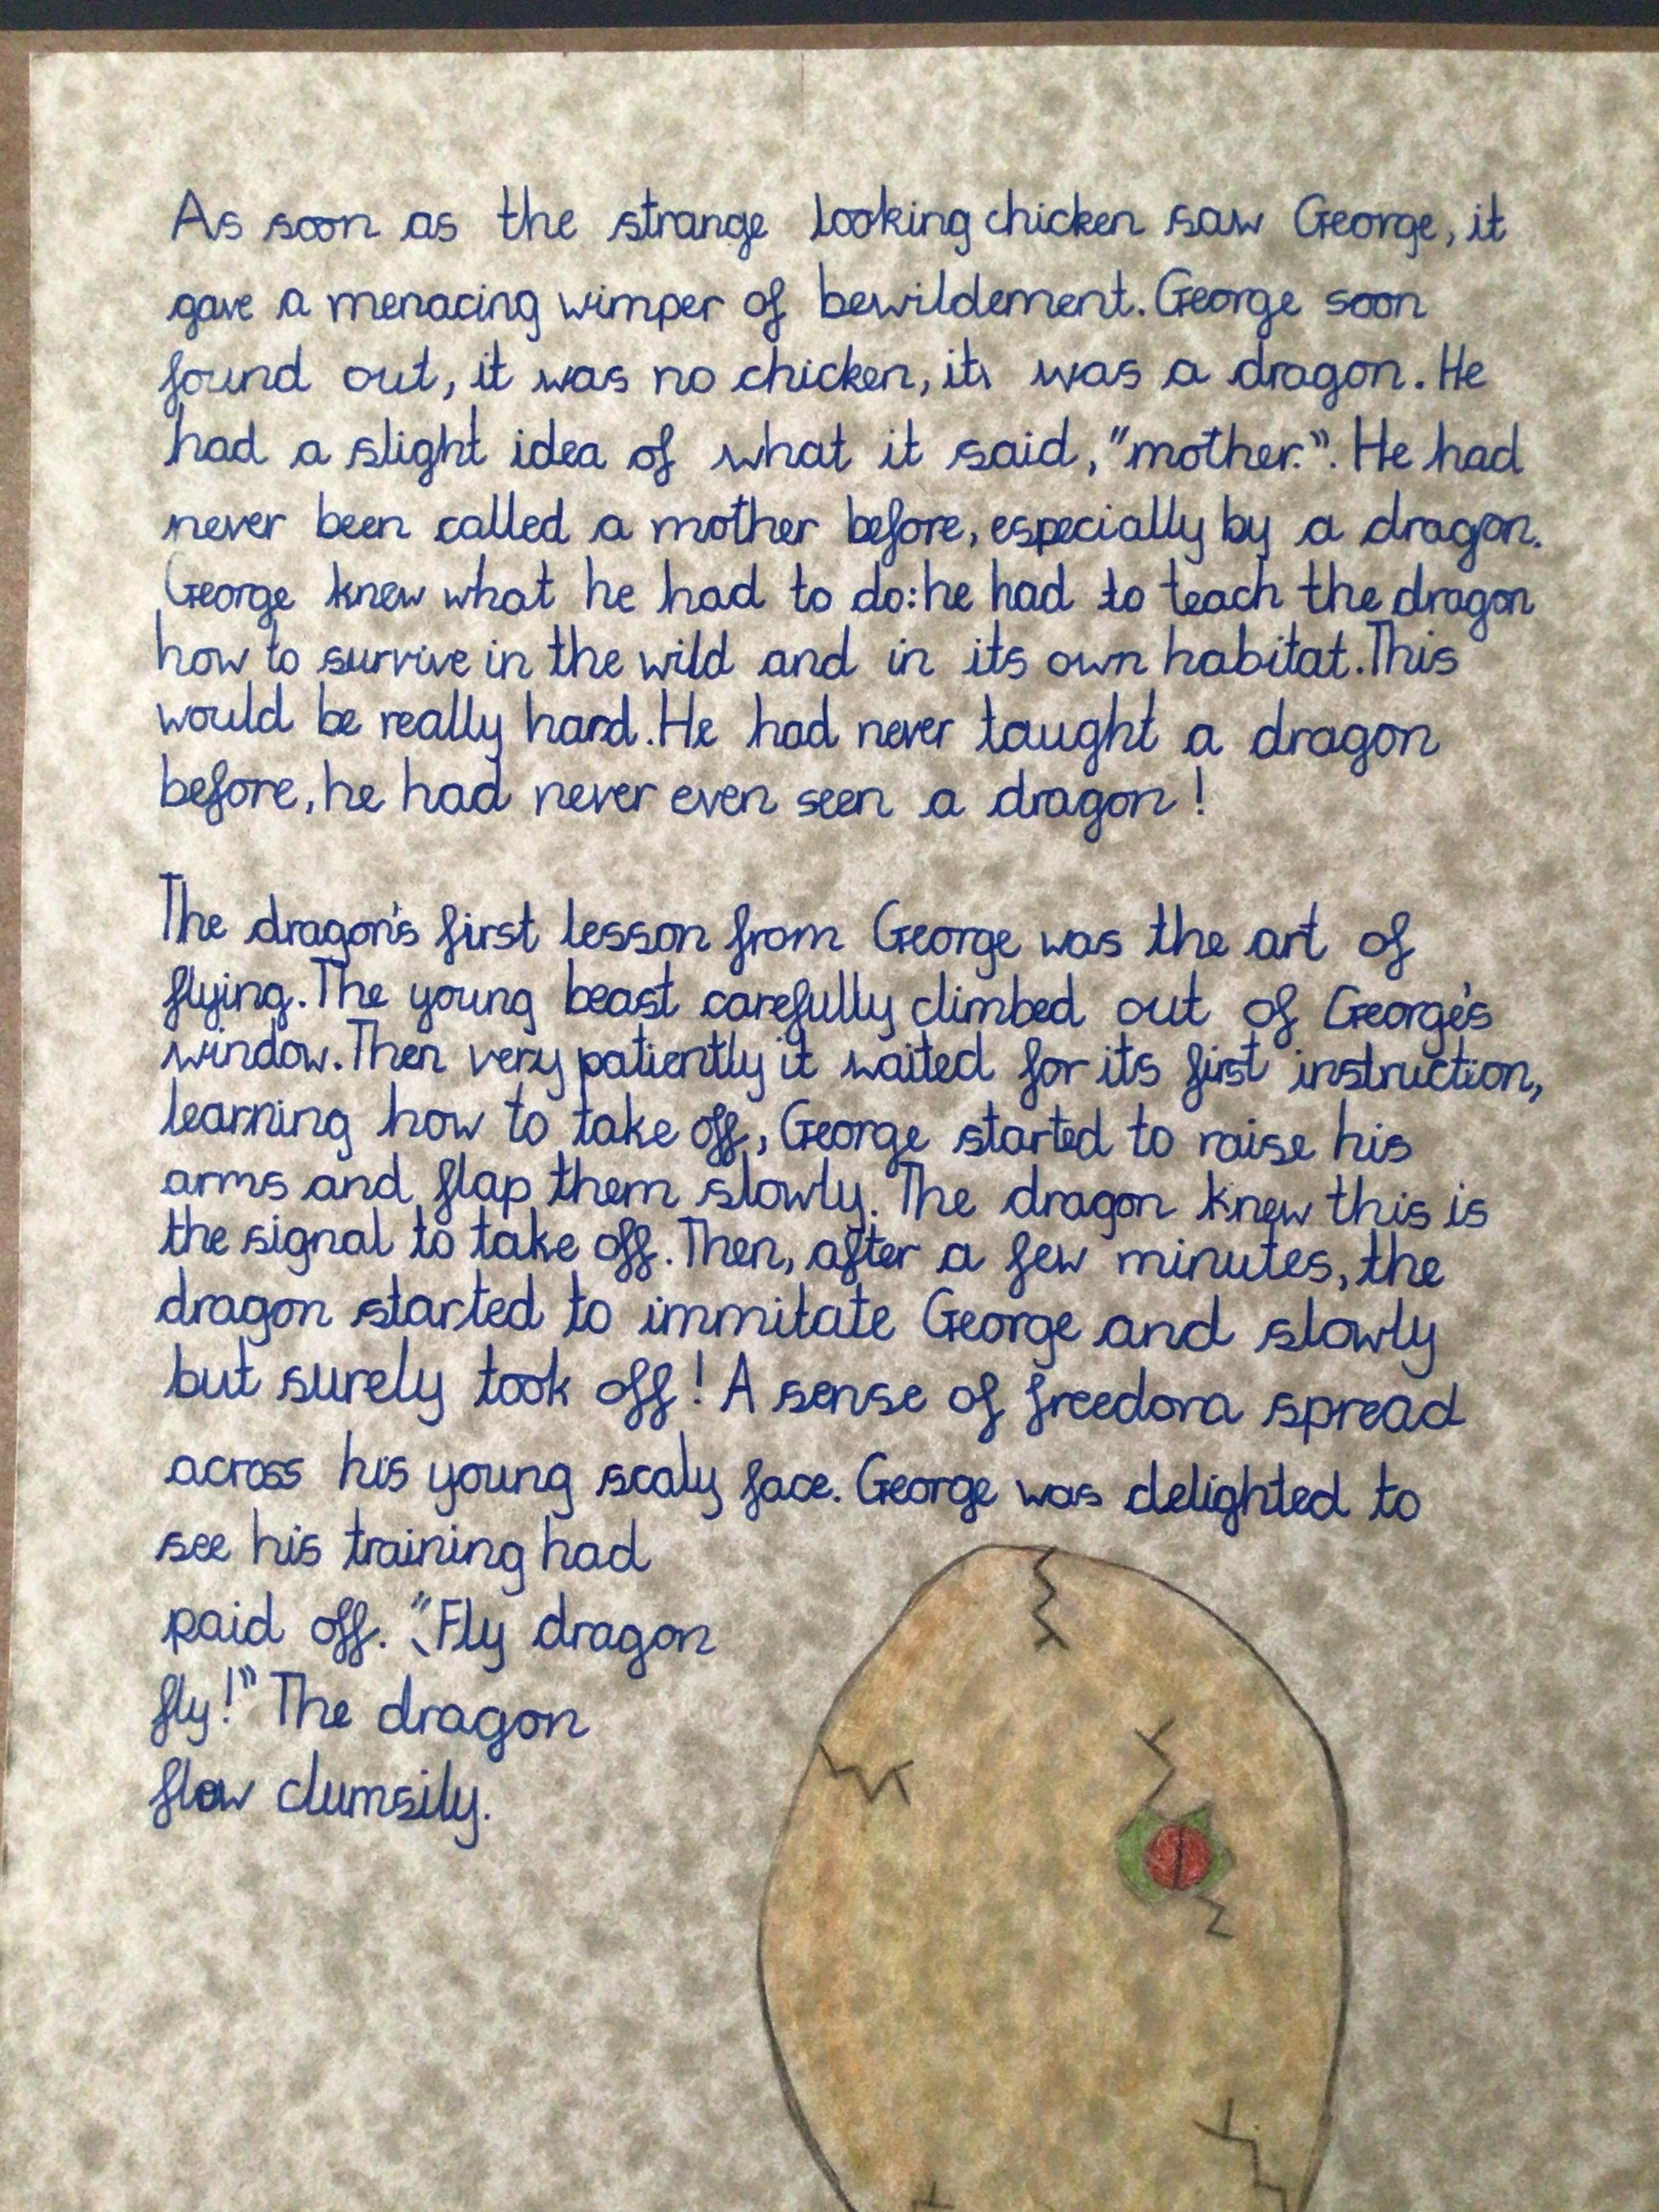 As soon as the strange looking chicken saw George, it
gave a menacing wimper of bewildement. George soon
found out, it was no chicken, it was a dragon. He
had a slight idea of what it said, "mother.". He had
never been called a mother before, especially by a dragon.
George knew what he had to do: he had to teach the dragon
how to survive in the wild and in its own habitat. This
would be really hard. He had never taught a dragon
before, he had never even seen a dragon!
The dragon's first lesson from George was the art of
flying. The young beast carefully climbed out of George's
window. Then very patiently it waited for its first instruction,
learning how to take off, George started to raise his
arms and flap them slowly. The dragon knew this is
the signal to take off. Then, after a few minutes, the
dragon started to immitate George and slowly
but surely took off! A sense of freedom spread
across his young scaly face. George was delighted to
see his training had
paid off. "Fly dragon
fly!" The dragon
flew clumsily.